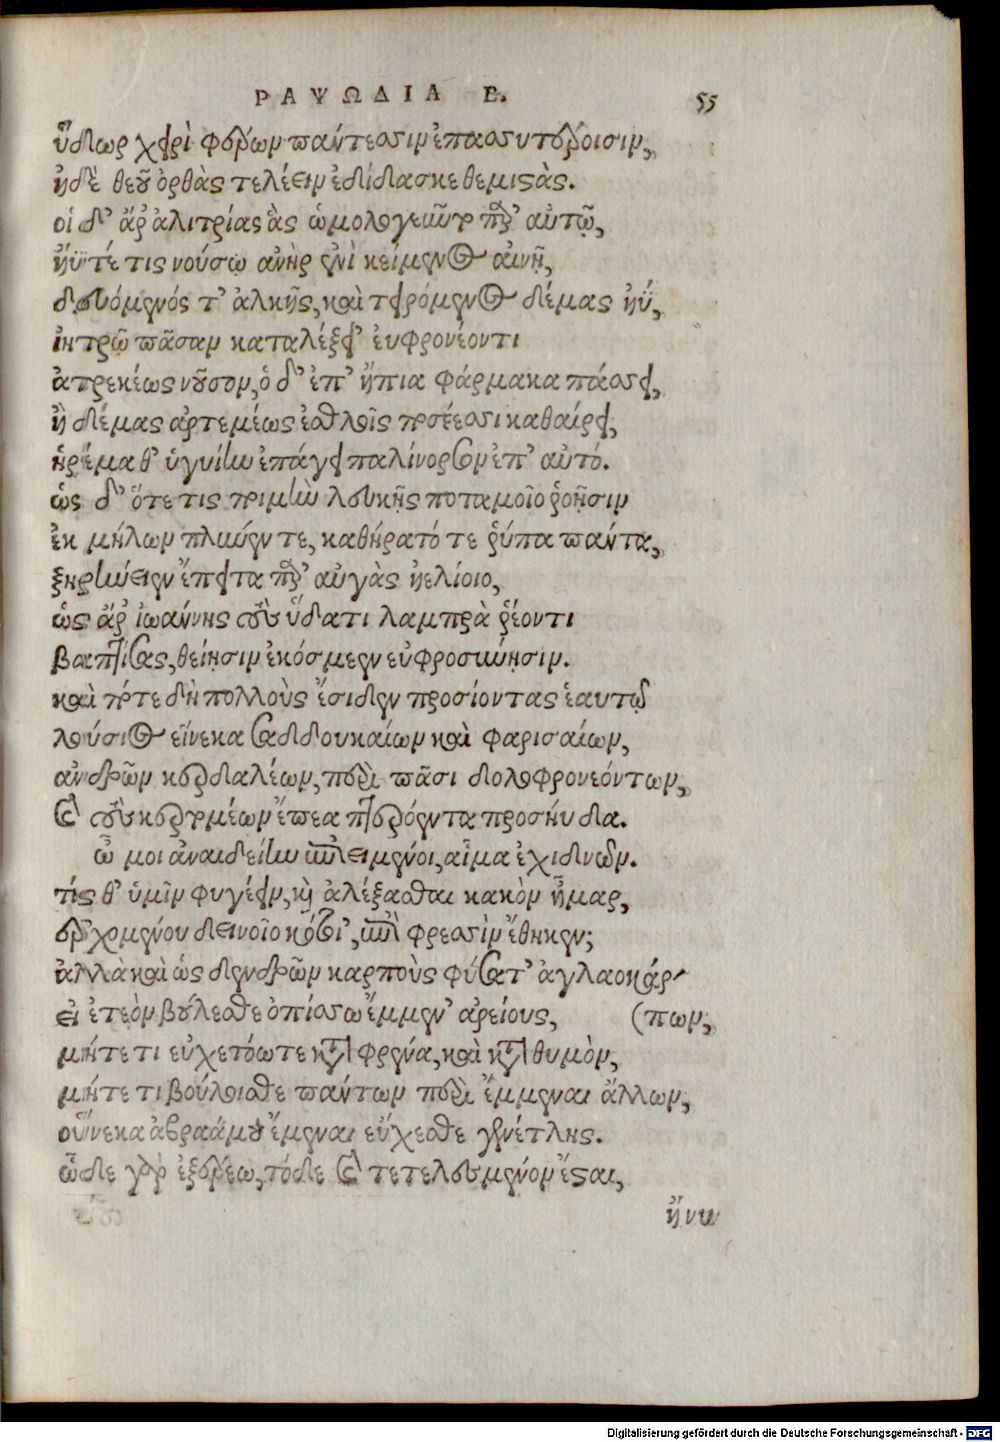 ΡΑΨΩΔΙΑ Ε. 55
ὕδωρ χειρὶ φέρων πάντεσσιν ἐπασσυτέροισιν,
ἠδὲ θεοῦ ὀρθὰς τελέειν ἐδίδασκε θεμιστὰς.
οἱ δ' ἄρ' ἀλιτρίας ἃς ὡμολογεῦν πρὸς αὐτῷ,
ἠΰτέ τις νούσῳ ἀνὴρ ἐνὶ κείμενος αἰνῇ,
δευόμενός τ' ἀλκῆς, καὶ τειρόμενος δέμας ἠΰ,
ἰητρῷ πᾶσαν καταλέξει ἐυφρονέοντι
ἀτρεκέως νοῦσον, ὁ δ' ἐπ' ἤπια φάρμακα πάσσει,
ἢ δέμας ἀρτεμέως ἐσθλοῖς ποτέεσσι καθαίρει,
ἠρέμα θ' ὑγυίην ἐπάγει παλίνορσον ἐπ' αὐτό.
ὡς δ' ὅτε τις ποιμὴν λευκῆς ποταμοῖο ῥοῇσιν
ἐκ μήλων πλύνεν τε, καθήρατό τε ῥύπα πάντα,
ξηρήνειεν ἔπειτα πρὸς αὐγὰς ἠελίοιο,
ὡς ἄρ' ἰωάννης σὺν ὕδατι λαμπρὰ ῥέοντι
βαπτίσας, θείῃσιν ἐκόσμεεν εὐφροσύνῃσιν.
καὶ τότε δὴ πολλοὺς ἔσιδεν προσίοντας ἑαυτῷ
λούσιος εἵνεκα σαδδουκαίων καὶ φαρισαίων,
ἀνδρῶν κερδαλέων, περὶ πᾶσι δολοφρονεόντων,
καὶ σὺν κερτομέων ἔπεα πτερόεντα προσηύδα.
ὤ μοι ἀναιδείην ἐπιειμένοι, αἷμα ἐχιδνῶν.
τίς θ' ὑμῖν φυγέειν, καὶ ἀλέξασθαι κακὸν ἦμαρ,
ἐρχομένου δεινοῖο κότοι', ἐπὶ φρεσὶν ἔθηκεν;
ἀλλὰ καὶ ὡς δενδρῶν καρποὺς φύσατ' ἀγλαοκάρ-
εἰ ἐτεὸν βούλεσθε ὀπίσσω ἔμμεν' ἀρείους, (πων,
μήτε τι εὐχετόωτε κατὰ φρένα, καὶ κατὰ θυμὸν,
μήτε τι βούλοισθε πάντων περὶ ἔμμεναι ἄλλων,
οὕνεκα ἀβραάμου ἔμεναι εὔχεσθε γενέτλης.
ὧδε γὰρ ἐξερέω, τόδε καὶ τετελευμένον ἔσται,
ἤνυ
Digitalisierung gefördert durch die Deutsche Forschungsgemeinschaft - DFG